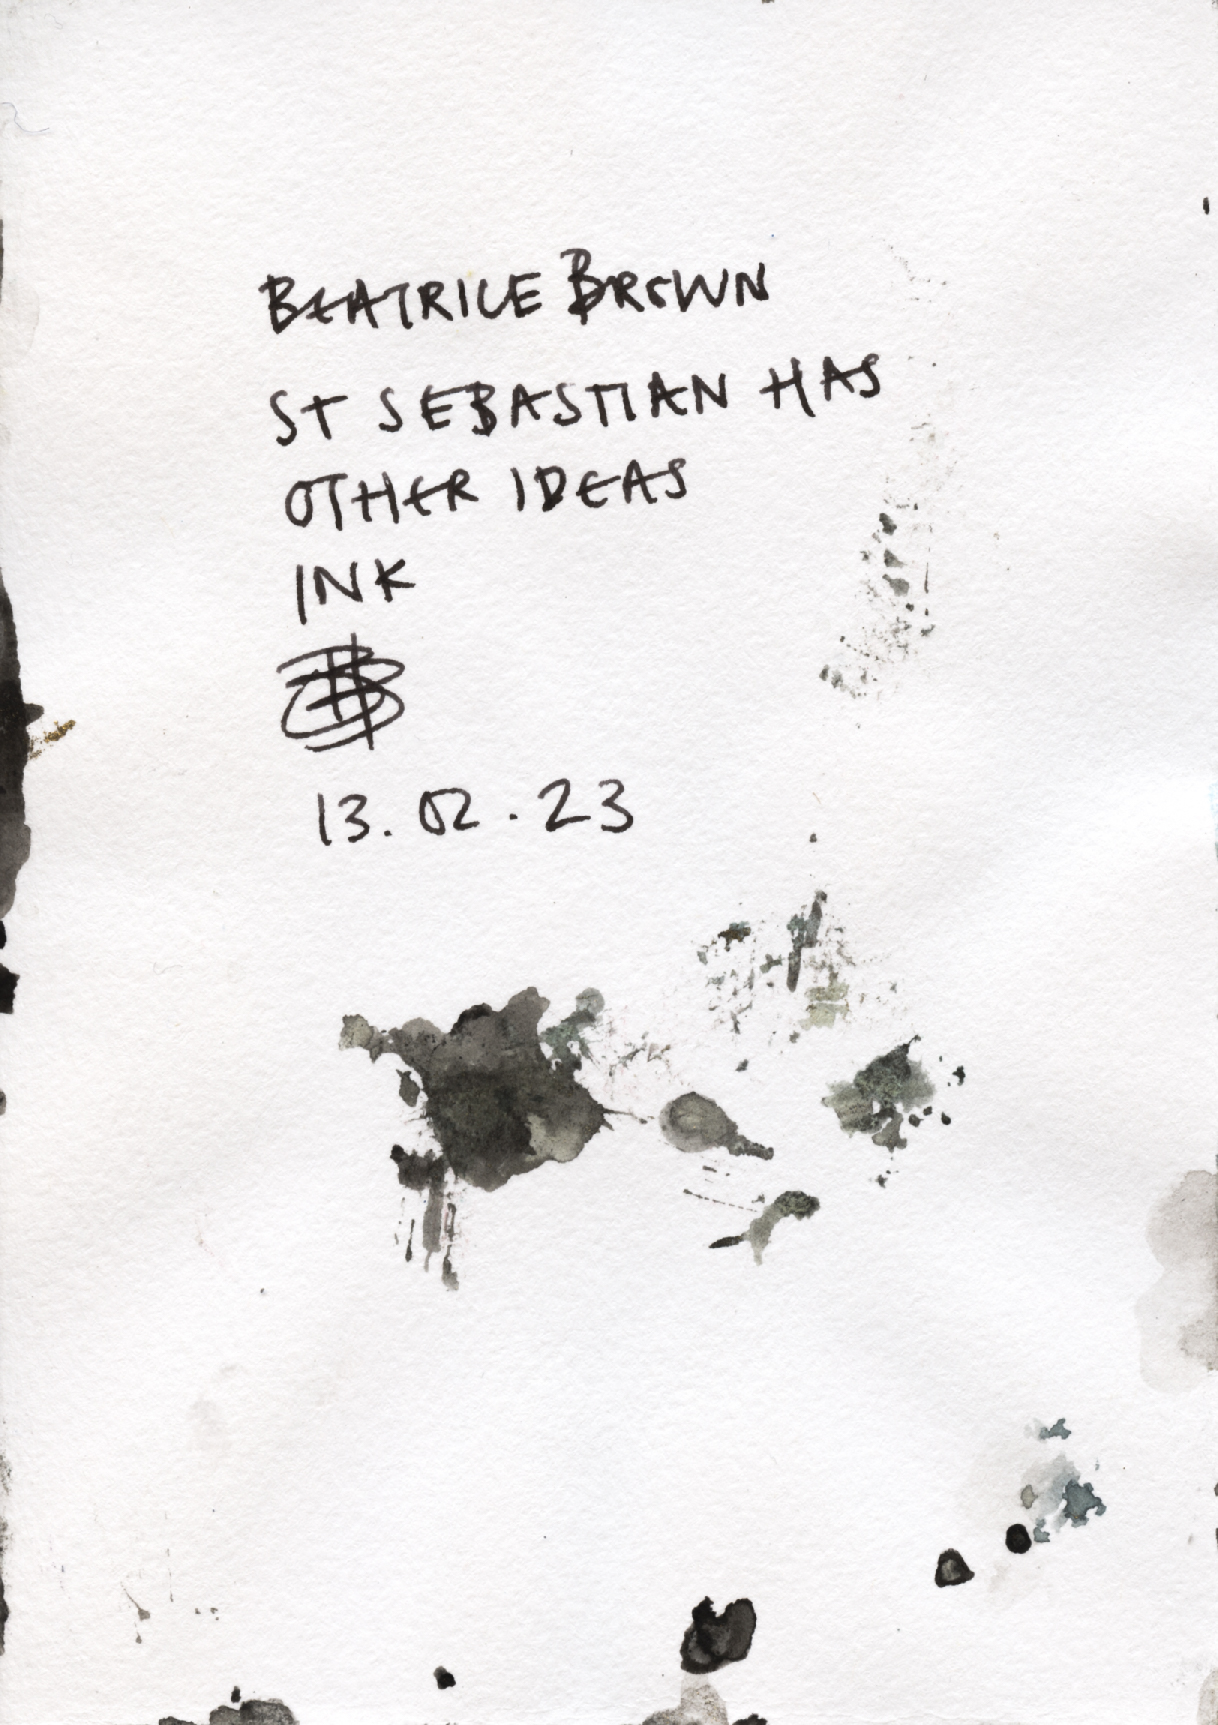 BEATRICE BROWN
ST SEBASTIAN HAS
OTHER IDEAS
INK
13.02.23